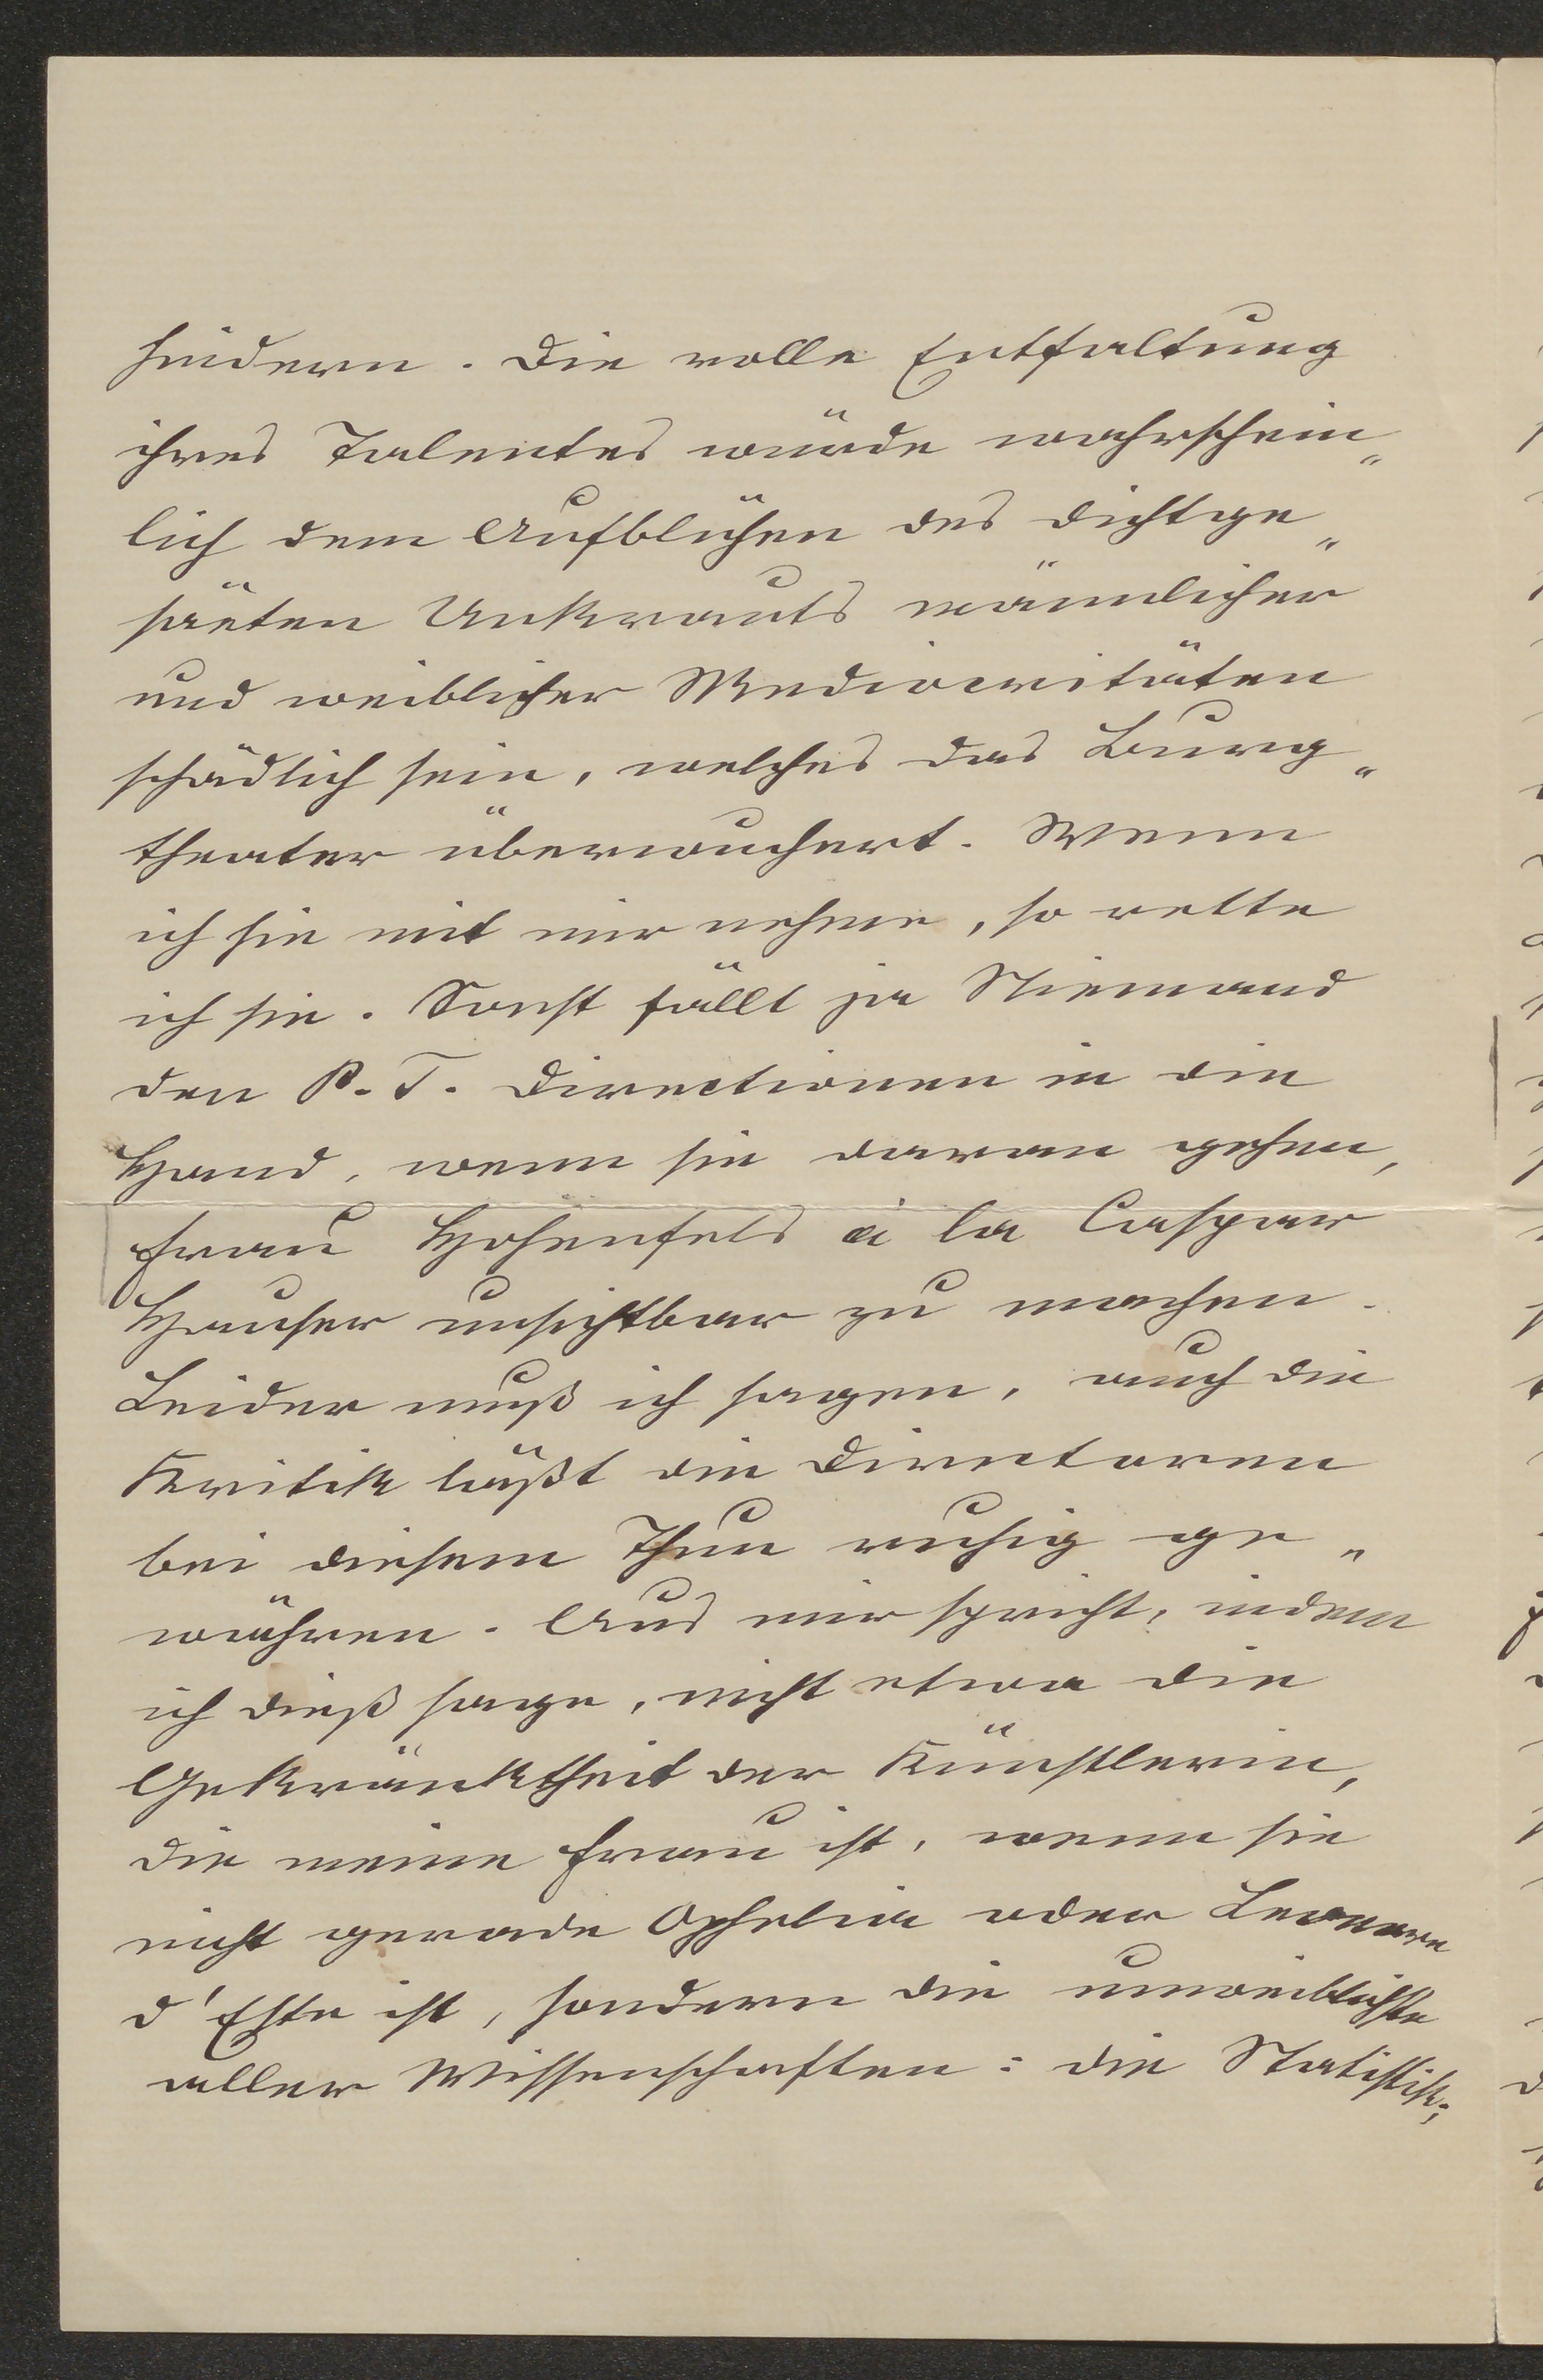 hindern. Die volle Entfaltung
ihres Talentes würde wahrschein„
lich dem Aufblühen des dichtge„
säeten Unkrauts männlicher
und weiblicher Mediocritäten
schädlich sein, welches das Burg„
theater überwuchert. Wenn
ich sie mit mir nehme, so rette
ich sie. Sonst fällt ja Niemand
den P. T. Directionen in die
Hand, wenn sie daran gehen,
Frau Hohenfels à la Caspar
Hauser unsichtbar zu machen.
Leider muß ich sagen, auch die
Kritik läßt die Directoren
bei diesem Thun ruhig ge„
währen. Aus mir spricht, indem
ich dieß sage, nicht etwa die
Gekränktheit der Künstlerin,
die meine Frau ist, wenn sie
nicht gerade Ophelia oder Leonore
d'Este ist, sondern die unweiblichste
aller Wissenschaften: die Statistik;